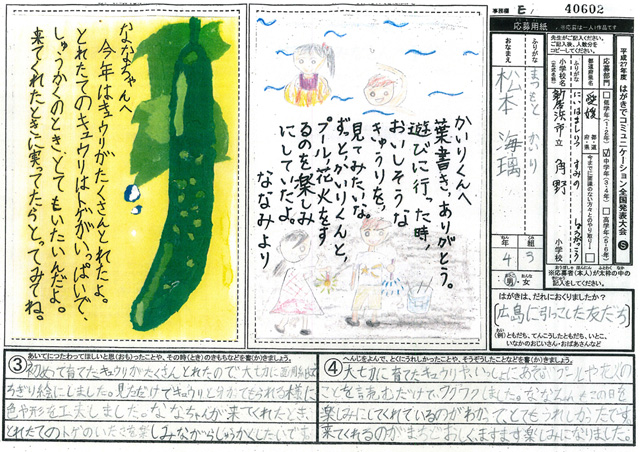 ななちゃんへ
今年はキュウリがたくさんとれたよ。
とれたてのキュウリはトゲがいっぱいで、
しゅうかくのとき、とてもいたいんだよ。
来てくれたときに実ってたらとってみてね。
かいりくんへ
葉書き、ありがとう。
遊びに行った時、
おいしそうな
きゅうりをっ
見てみたいな。
ずっと、かいりくんと、
プールや花火をす
るのを楽しみ
にしていたよ。
ななみより
事務欄 E
40602
応募用紙 ※応募は一人1作品です
先生がご記入ください。
ご記入後、人数分を
コピーしてください。
平成27年度 はがきでコミュニケーション全国発表大会 S
応募部門
低学年(1・2年)
中学年(3・4年)
高学年(5・6年)
都道府県名
愛媛
都・道
府・県
ふりがな
小学校名
(正式名称)
にいはましりつ すみの しょうがっこう
新居浜市立 角野
小学校
ふりがな
おなまえ
まつもと かいり
松本 海璃
4年
3組
男・女
※応募者(本人)が太枠の中の
記入をしてください。
はがきは、だれにおくりましたか?
広島に引っこした友だち
(例)ともだち、てんこうしたともだち、いとこ、
いなかのおじいさん・おばあさんなど
③ あいてにつたわってほしいと思(おも)ったことや、その時(とき)のきもちなどを書(か)きましょう。
初めて育てたキュウリがたくさんとれたので大切に
ちぎり絵にしました。見ただけでキュウリと
色や形を工夫しました。ななちゃんが来てくれたとき、
とれたてのトゲのいたさを楽しみながらしゅうかくしたいです。
④ へんじをよんで、とくにうれしかったことや、そうぞうしたことなどを書(か)きましょう。
大切に育てたキュウリや
ことを
楽しみにしてくれているのがわかって、とてもうれしかったです。
来てくれるのがまちどおしく、ますます楽しみになりました。